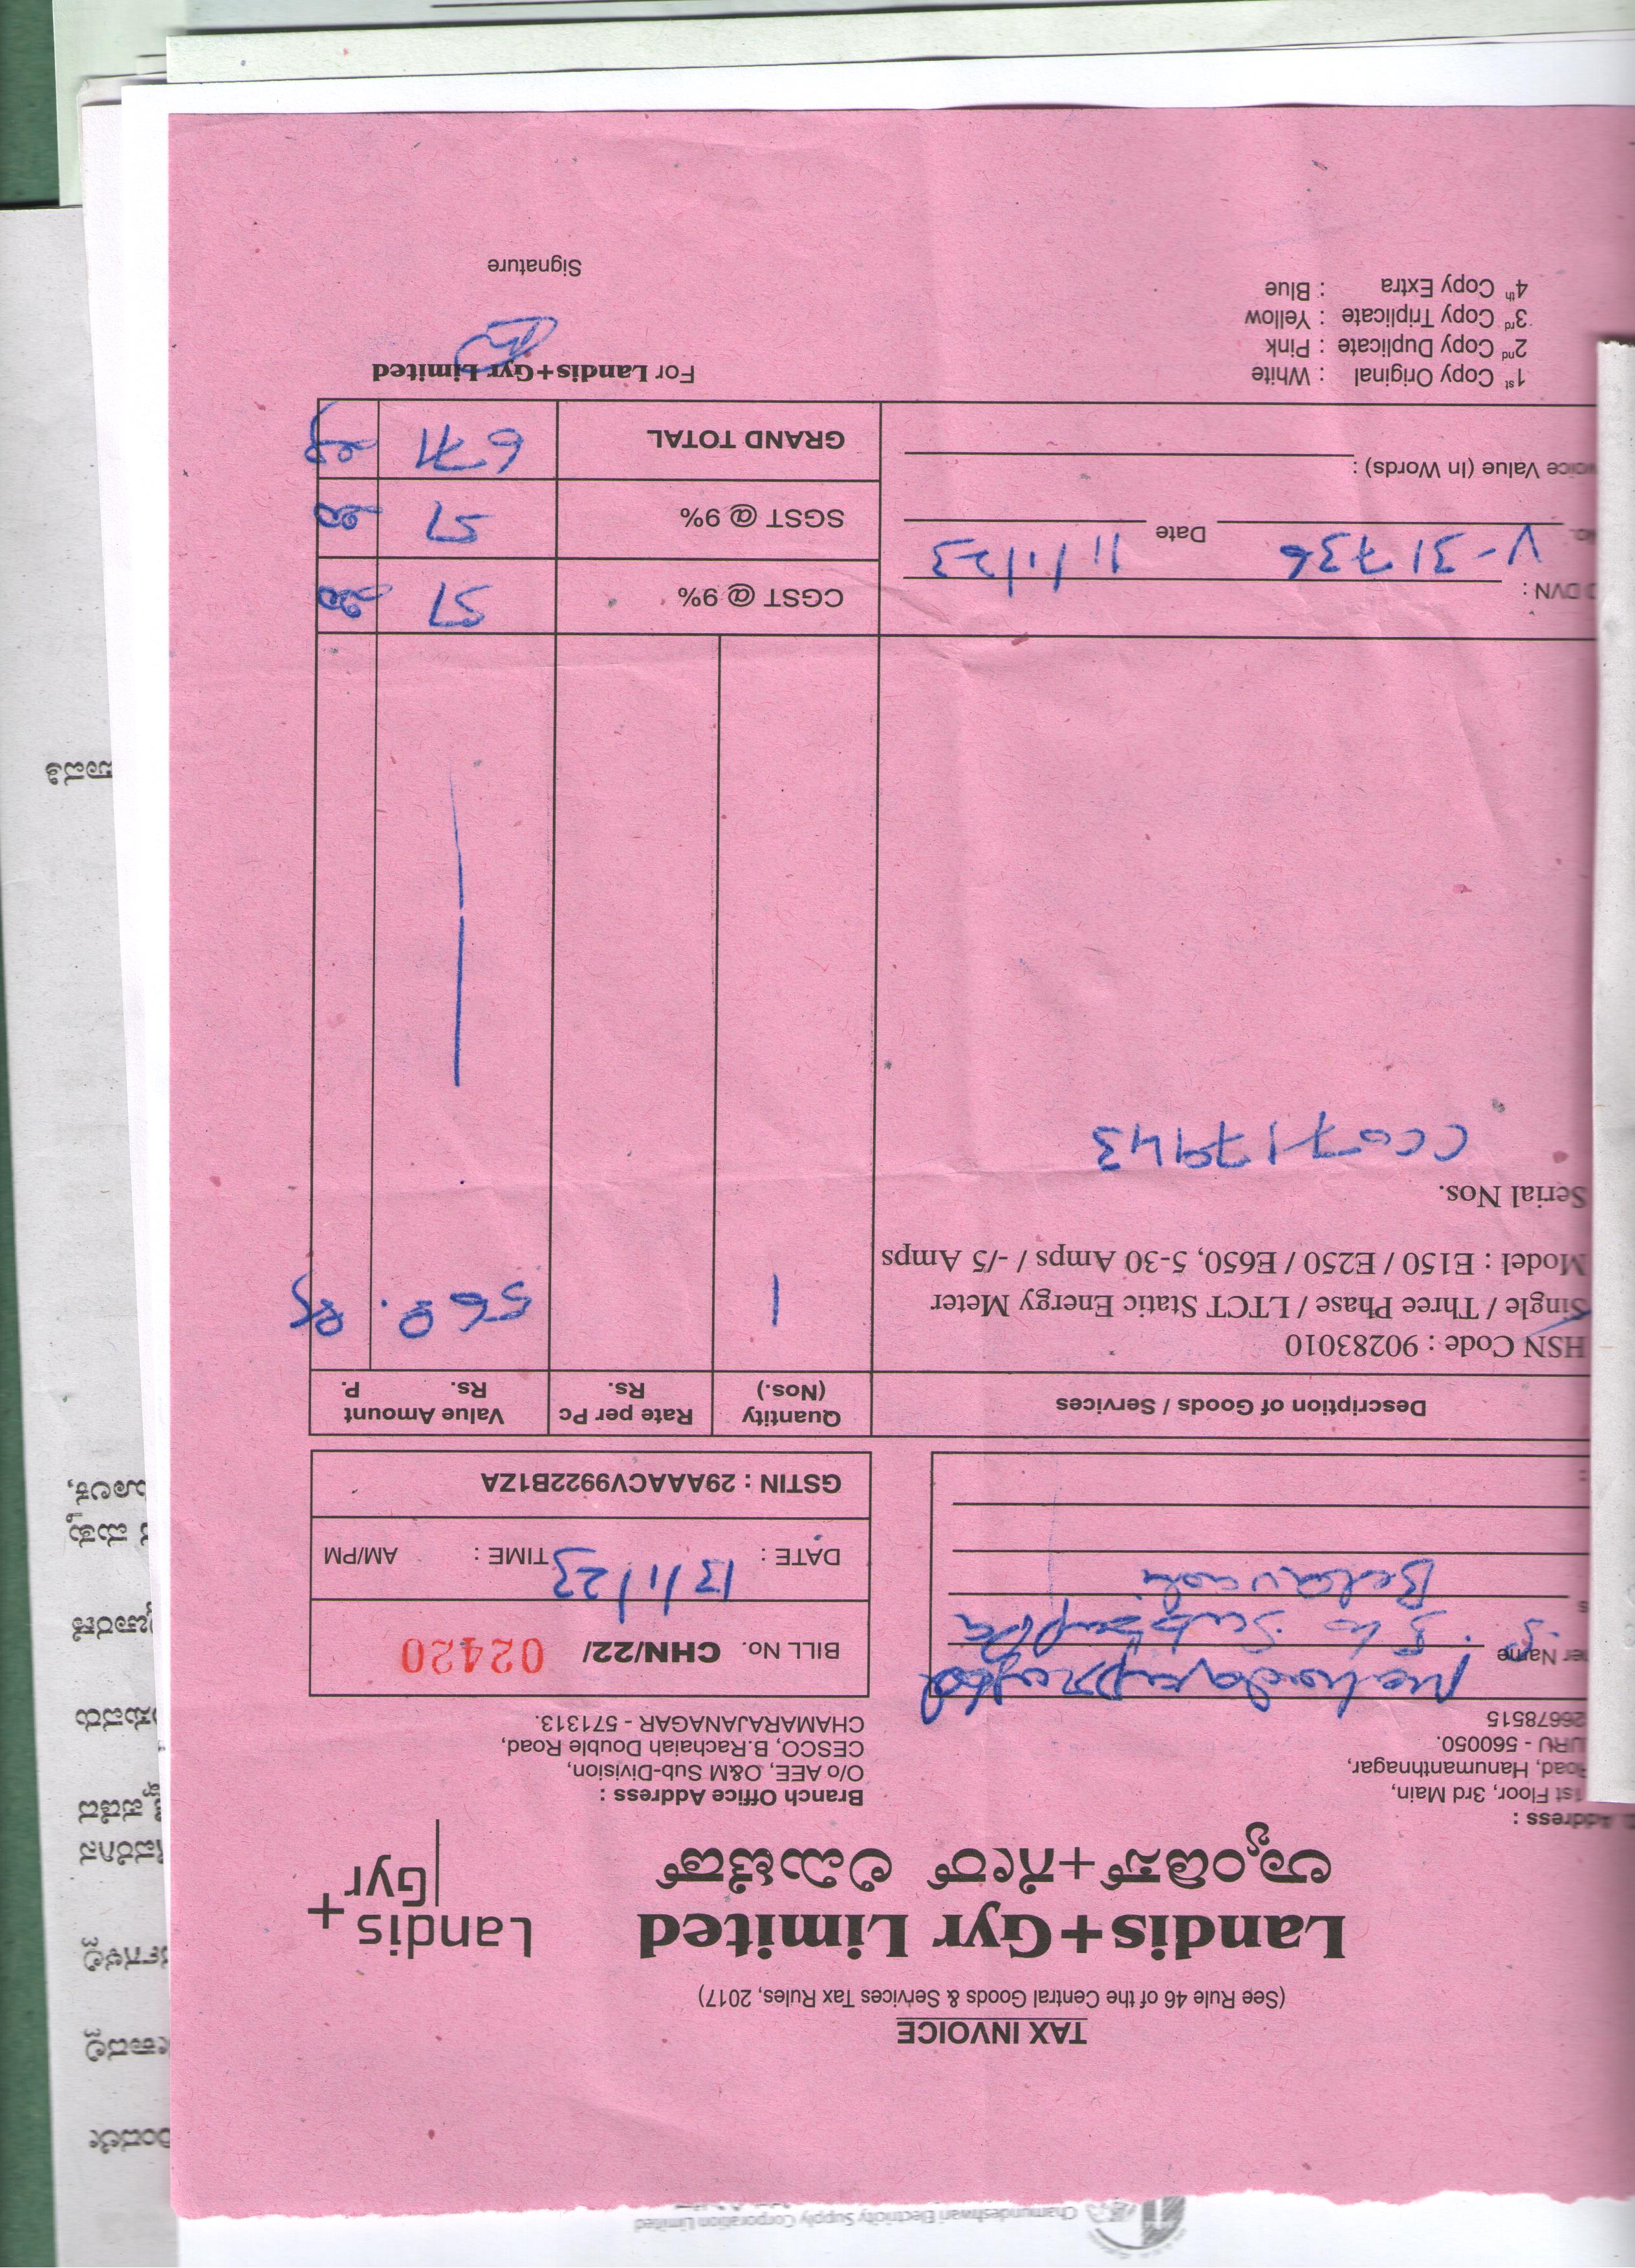 Chamundeshwari Electricity Supply Corporation Limited
TAX INVOICE
(See Rule 46 of the Central Goods & Services Tax Rules, 2017)
Landis+Gyr Limited
ಲ್ಯಾಂಡಿಸ್+ಗೇರ್ ಲಿಮಿಟೆಡ್
Landis
Gyr+
Address :
1st Floor, 3rd Main,
Road, Hanumanthnagar,
URU - 560050.
26678515
Branch Office Address :
O/o AEE, O&M Sub-Division,
CESCO, B.Rachaiah Double Road,
CHAMARAJANAGAR - 571313.
Name
BILL No. CHN/22/ 02420
DATE : 13/1/23 TIME : AM/PM
GSTIN : 29AAACV9922B1ZA
Description of Goods / Services
Quantity (Nos.)
Rate per Pc Rs.
Value Amount Rs. P.
HSN Code : 90283010
Single / Three Phase / LTCT Static Energy Meter
Model : E150 / E250 / E650, 5-30 Amps / -/5 Amps
1
568.
Serial Nos.
CC0717943
DVN :
V-31736 Date 11/1/23
CGST @ 9% 51
SGST @ 9% 51
Value (In Words) :
GRAND TOTAL 671
1st Copy Original : White
2nd Copy Duplicate : Pink
3rd Copy Triplicate : Yellow
4th Copy Extra : Blue
For Landis+Gyr Limited
Signature